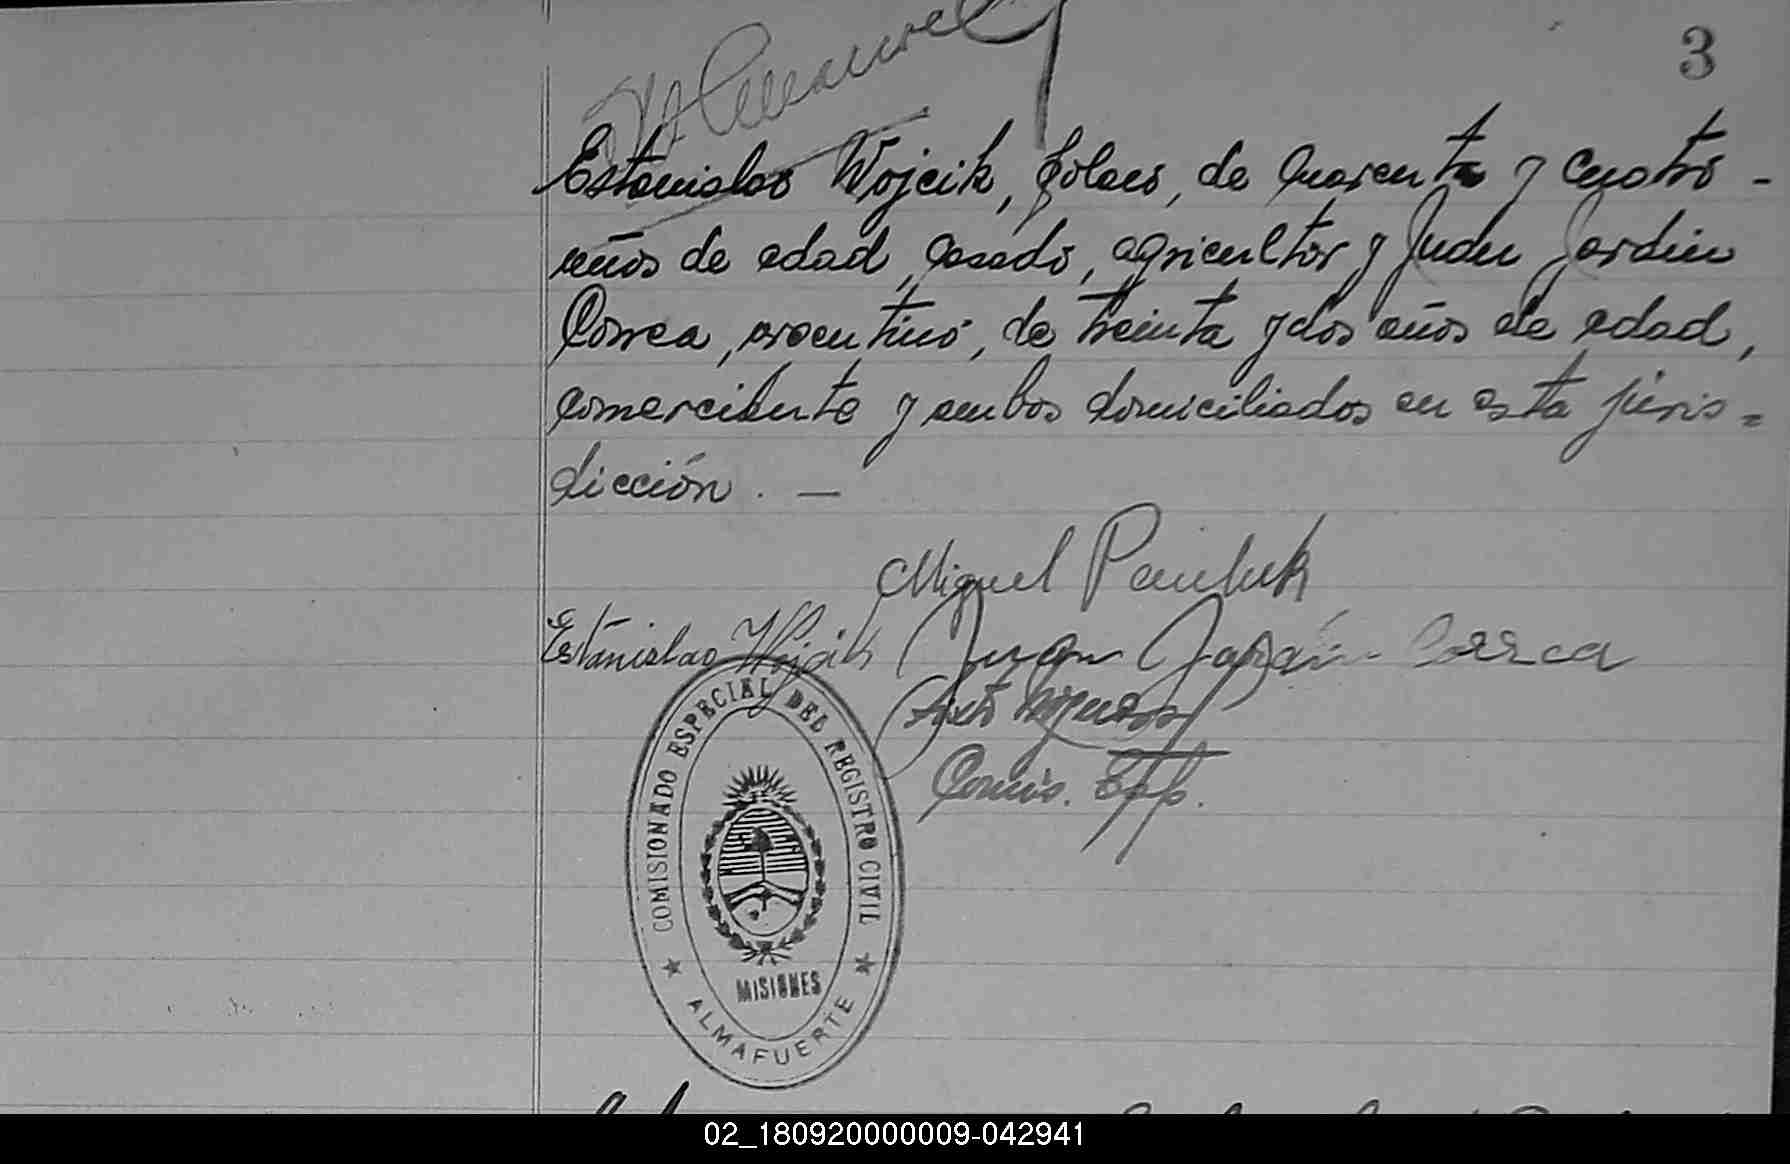 3
Estanislao Wojcik, polaco, de cuarenta y cuatro -
años de edad, casado, agricultor y Juan Jardin
Correa, argentino, de treinta y dos años de edad,
comerciante y ambos domiciliados en esta juris=
dicción. —
Miguel Pauluk
Estanislao Wojcik Juan Jardin Correa
Comis. Esp.
COMISIONADO ESPECIAL DEL REGISTRO CIVIL
MISIONES
★ ALMAFUERTE ★
02_180920000009-042941